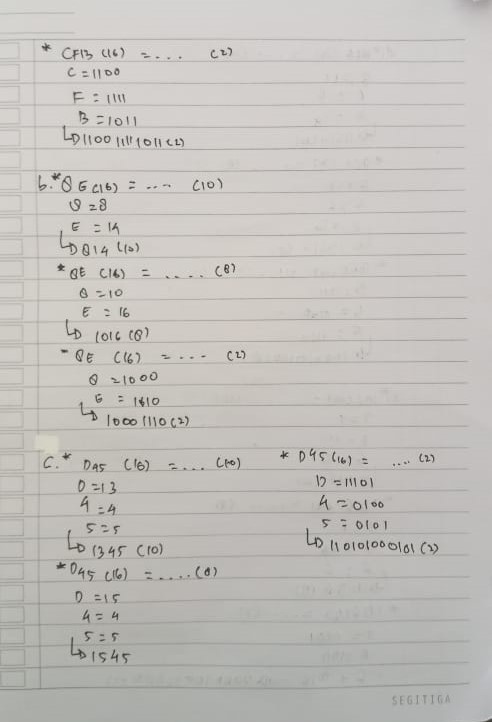 * CFB (16) = ... (2)
C = 1100
F = 1111
B = 1011
↳ 110011111011 (2)
b. * 8E (16) = .... (10)
8 = 8
E = 14
↳ 814 (10)
* 8E (16) = .... (8)
8 = 10
E = 16
↳ 1016 (8)
- 8E (16) = ... (2)
8 = 1000
E = 1110
↳ 10001110 (2)
C. * D45 (16) = .... (10)
D = 13
4 = 4
5 = 5
↳ 1345 (10)
* D45 (16) = .... (8)
D = 15
4 = 4
5 = 5
↳ 1545
* D45 (16) = .... (2)
D = 1101
4 = 0100
5 = 0101
↳ 110101000101 (2)
SEGITIGA